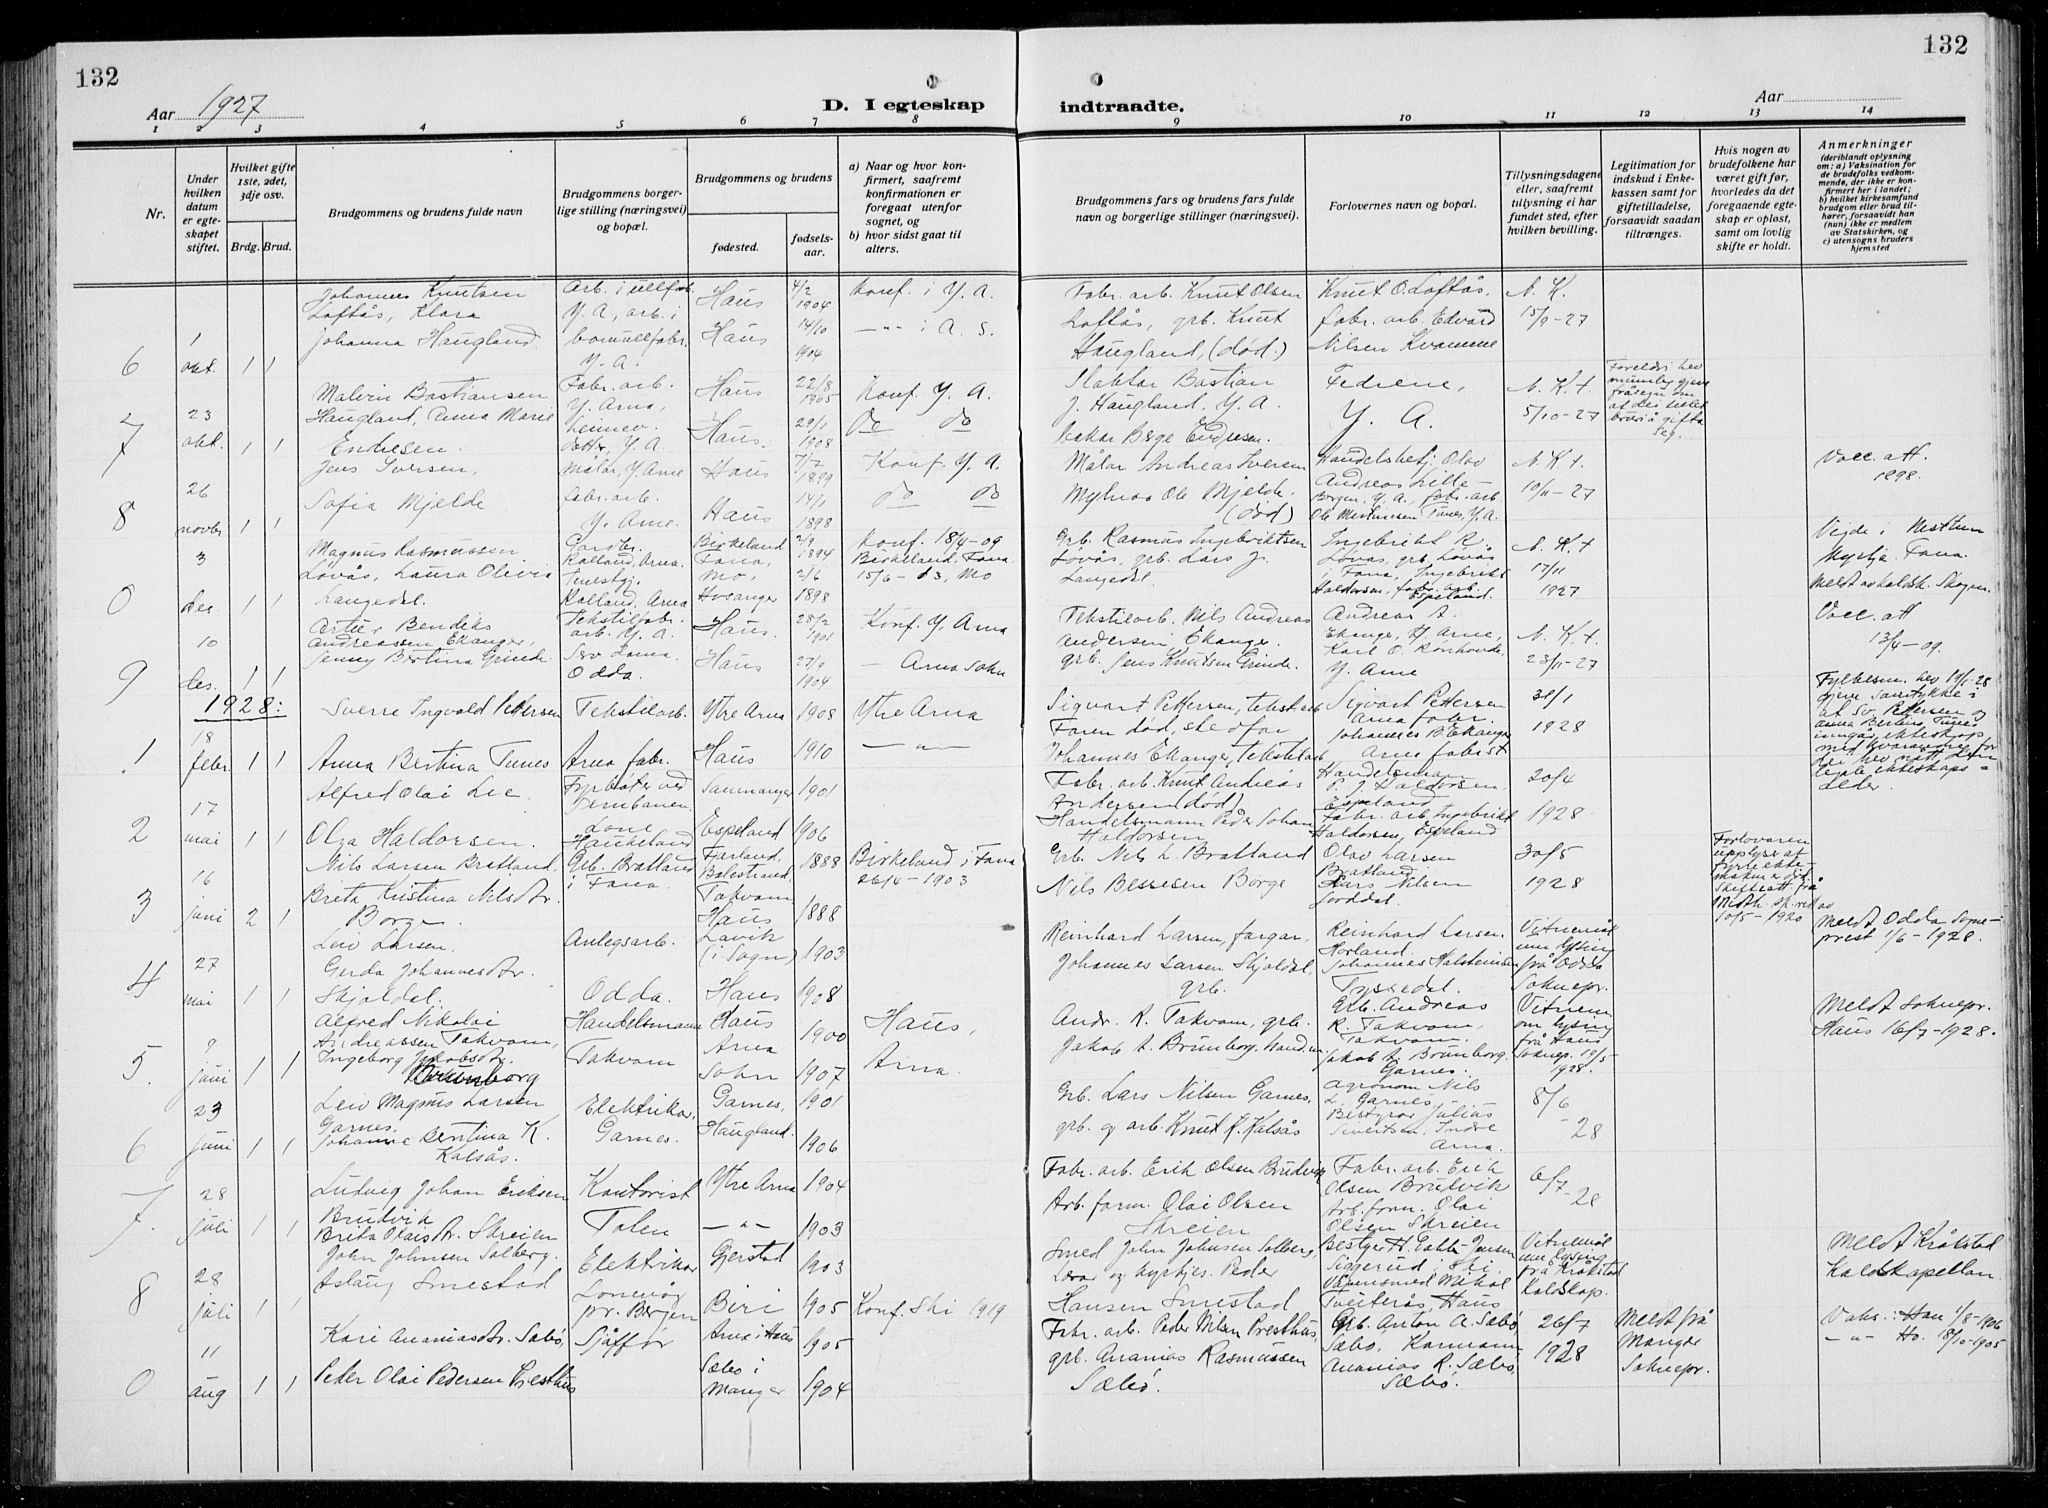 132
132
Aar 1927
D. I egteskap
indtraadte.
Aar
1 2 3 4 5 6 7 8 9 10 11 12 13 14
Nr.
Under hvilken datum er egteskapet stiftet.
Hvilket gifte 1ste, 2det, 3dje osv.
Brdg. Brud.
Brudgommens og brudens fulde navn
Brudgommens borgerlige stilling (næringsvei) og bopæl.
Brudgommens og brudens
fødested.
fødselsaar.
a) Naar og hvor konfirmert, saafremt konfirmationen er foregaat utenfor sognet, og
b) hvor sidst gaat til alters.
Brudgommens fars og brudens fars fulde navn og borgerlige stillinger (næringsvei).
Forlovernes navn og bopæl.
Tillysningsdagene eller, saafremt tillysning ei har fundet sted, efter hvilken bevilling.
Legitimation for indskud i Enkekassen samt for giftetilladelse, forsaavidt saadan tiltrænges.
Hvis nogen av brudefolkene har været gift før, hvorledes da det foregaaende egteskap er opløst, samt om lovlig skifte er holdt.
Anmerkninger
(deriblandt oplysning om: a) Vaksination for de brudefolks vedkommende, der ikke er konfirmert her i landet; b) hvilket kirkesamfund brudgom eller brud tilhører, forsaavidt han (hun) ikke er medlem av Statskirken, og c) utensogns bruders hjemsted
6 1 okt. 1 1
Johannes Knutsen Loftås, Klara Johanna Haugland.
Arb. i ullfabr. Y. A., arb. i bomullfabr. Y. A.
Haus 4/2 1904
Haus 14/10 1904
Konf. i Y. A.
-"- i A. S.
Fabr. arb. Knut Olsen Loftås, grb. Knut Haugland, (død.)
Knut O. Loftås, fabr. arb. Edvard Nilsen Kvamme
N. K. 15/9-27
7 23 okt. 1 1
Malvin Bastiansen Haugland, Anna Marie Endresen.
Fabr. arb. Y. Arna,
Haus 22/8 1905
Haus. 29/1 1908
Konf. Y. A.
do do
Slaktar Bastian J. Haugland, Y. A.
Endresen.
Fedrene, Y. A.
N. K. + 5/10-27
Foreldri hev
8 26 novbr 1 1
Jens Iversen,
Sofia Mjelde
Målar, Y. Arne
fabr. arb. Y. Arne.
Haus 7/7 1899
Haus 14/1 1898
Konf. Y. A.
do do
Målar Andreas Iversen
Ole Mjelde. (død)
Handelsbetj. Olav Andreas Lille-Borgen, Y. A., fabr. arb. Ole Mertinusen Tunes, Y. A.
N. K +. 10/11-27
Vacc. att. 1898.
0 3 des. 1 1
Magnus Rasmussen Løvås, Laura Olivia Langedal.
Gardbr. Kalland, Arna.
Kalland, Arna
Birkeland Fana, 2/9 1894
Mo, Hosanger 2/6 1898
Konf. 18/4-09 Birkeland, Fana.
15/6-13, Mo
Grb. Rasmus Ingebriktsen Løvås, grb. Lars J. Langedal.
Ingebrikt R. Løvås, grb. Løvås i Fana, Ingebrikt Haldorsen, fabr. arb. Espeland.
N. K + 17/11 1927
Vigde i
Fana.
9 10 des. 1 1
Artur Bendiks Andreassen Ekanger, Jenny Bertina Grinde.
Tekstilfabr. arb. Y. A.
Odda.
Haus. 28/2 1901
Haus 27/9 1904
Konf. Y. Arna
- Arna sokn
Tekstilarb. Nils Andreas Andersen Ekanger.
grb. Jens Knutsen Grinde.
Andreas A. Ekanger, Y. Arne, Karl O. Rønhovde, Y. Arne
N. K +. 23/11-27
Vacc. att 13/4-09.
1928:
1 18 febr. 1 1
Sverre Ingvald Pettersen
Anna Bertina Tunes
Tekstilarb.
Arna fabr.
Ytre Arna 1908
Haus 1910
Ytre Arna
-"-
Sigvart Pettersen, tekst.arb
Faren død, stedfar Johannes Ekanger, tekstilarb
Sigvart Pettersen Arna fabr.
Johannes B Ekanger Arna fabr.
31/1 1928
Fylkesm. hev 19/1-28 gjeve samtykke i at Sv. Pettersen og Anna Bertina Tunes inngår ekteskap med kvarandre
2 17 mai 1 1
Alfred Olai Lie
Olga Haldorsen.
Fyrbøter ved Jernbanen.
Haukeland
Samnanger 1901
Espeland 1906
Fabr. arb. Knut Andreas Andersen (død)
Handelsmann Peder Johan Haldorsen
Handelsmann P. J. Haldorsen, Espeland
Fabr. arb. Ingebrikt Haldorsen, Espeland
20/4 1928
3 16 juni 2 1
Nils Larsen Bratland,
Brita Kristina Nilsdtr. Borge.
Grb. Bratland i Fana.
Farland, Balestrand. 1888
Takvam Haus 1888
Birkeland i Fana 26/4-1903
Grb. Nils L. Bratland
Nils Bessesen Borge
Olav Larsen Bratland
Lars Nilsen
30/5 1928
Forlovaren upplyser at
10/5-1920
4 27 mai 1 1
Leiv Larsen.
Gerda Johannesdtr. Skjoldal.
Anlegsarb.
Odda.
Lavik (i Sogn) 1903
Haus 1908
Reinhard Larsen, fargar,
Johannes Larsen Skjoldal. grb.
Reinhard Larsen. Horland.
Johannes Halsteinsen Tyssedal.
Vitnemål um lysing frå Odda Soknepr.
Meldt Odda Sokneprest 1/6-1928.
5. 9 juni 1 1
Alfred Nikolai Andreassen Takvam,
Ingeborg Jakobsdtr. Brunborg
Handelsmann
Takvam
Haus 1900
Arna Sokn 1907
Haus,
Arna.
Andr. R. Takvam, grb.
Jakob A. Brunborg, handsm.
Grb. Andreas R. Takvam, Takvam.
Jakob A Brunborg. Garnes.
Vitnem. om lysing frå Haus Soknepr. 19/5 1928.
Meldt Soknepr. Haus 16/7-1928.
6 23 juni 1 1
Leiv Magnus Larsen Garnes.
Johanna Bentina K. Kalsås.
Elektriker.
Garnes.
Garnes, 1901
Haugland. 1906
Grb. Lars Nilsen Garnes.
grb. og arb. Knut K. Kalsås
Agronom Nils L. Garnes
Bestyrar Julius Sivertsen, Indre Arna.
8/6-28
7. 28 juli 1 1
Ludvig Johan Eriksen Brudvik
Brita Olaisdtr. Skreien
Kontorist
Tolen
Ytre Arna 1904
-"- 1903
Fabr. arb. Erik Olsen Brudvik
Arb. form. Olai Olsen Skreien
Fabr. arb. Erik Olsen Brudvik
Arb. form. Olai Olsen Skreien
6/7-28
8 28 juli 1 1
John Johnsen Solberg.
Aslaug Smestad
Elektriker
pr. Bergen
Gjerstad 1903
Biri 1905
Konf. Ski 1919
Smed John Johnsen Solberg,
Lærar og kyrkjes. Peder Hansen Smestad
Siggerud i Ski.
Mikal Tveiterås, Haus
Vitnemål um lysing frå Kråkstad Kaldskap.
Meldt Kråkstad Kaldskapellan.
0 11 aug 1 1
Kari Ananiasdtr. Sæbø,
Peter Olai Pedersen Presthus
Sjåffør
Arna i Haus 1905
Sæbø i Manger 1904
Fabr. arb. Peder Nilsen Presthus,
grb. Ananias Rasmussen Sæbø.
Grb. Anton A. Sæbø, Sæbø,
Ananias R. Sæbø, Sæbø.
26/7 1928
Meldt frå Manger Soknepr.
Vaks.: Han 1/8-1906
-"- Ho. 18/10-1905